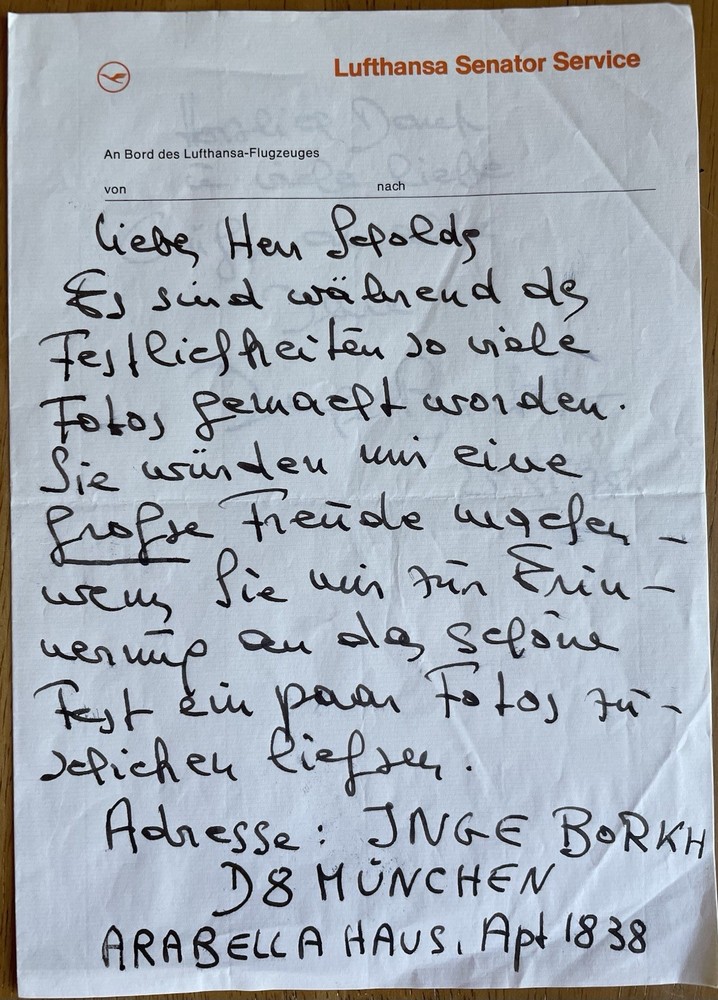 Lufthansa Senator Service
An Bord des Lufthansa-Flugzeuges
von nach
Lieber Herr Scholder
Es sind während der
Festlichkeiten so viele
Fotos gemacht worden.
Sie würden mir eine
große Freude machen –
wenn Sie mir zur Erin-
nerung an das schöne
Fest ein paar Fotos zu-
schicken ließen.
Adresse: INGE BORKH
D8 MÜNCHEN
ARABELLA HAUS, Apt 1838